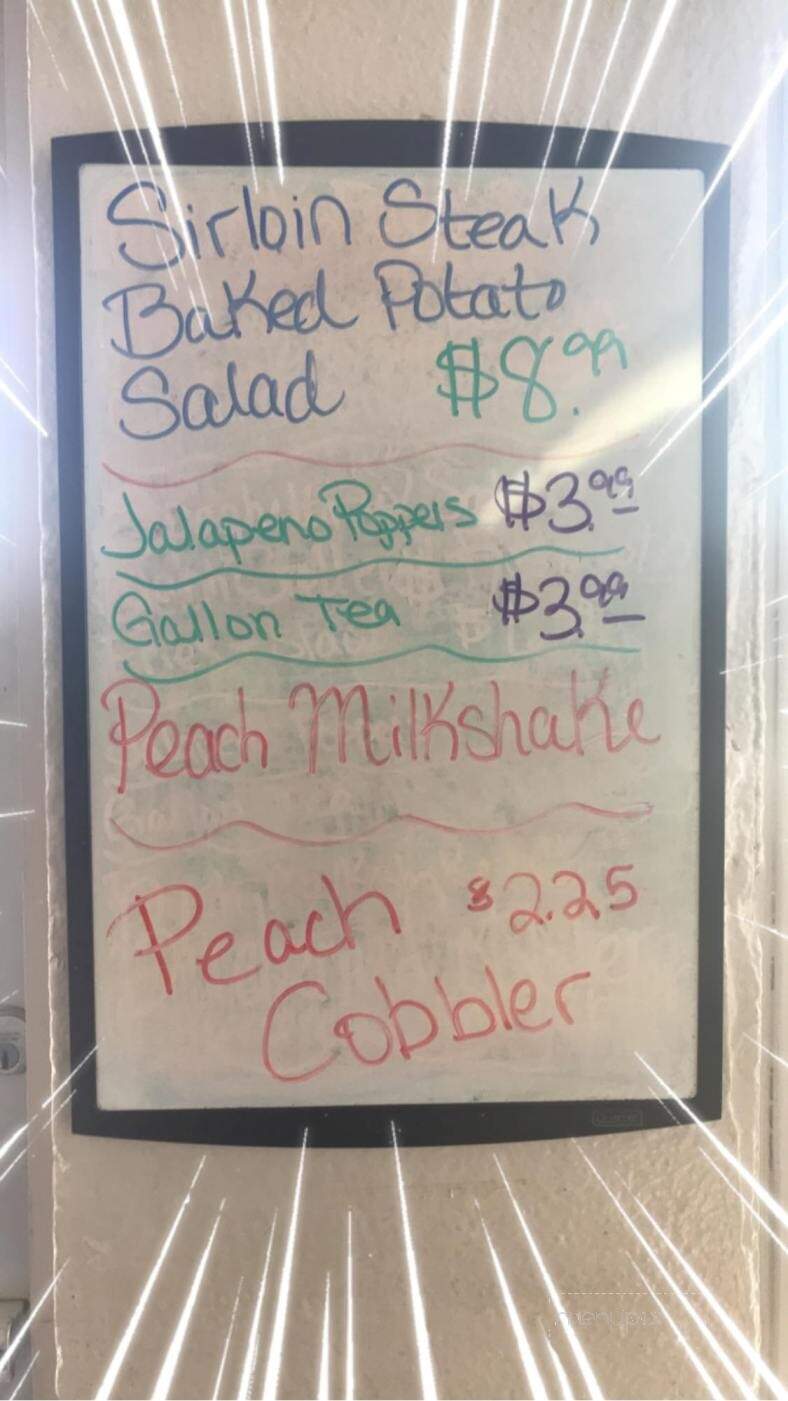 Sirloin Steak
Baked Potato
Salad $8.99
Jalapeno Poppers $3.99
Gallon Tea $3.99
Peach Milkshake
Peach $2.25
Cobbler
menupix